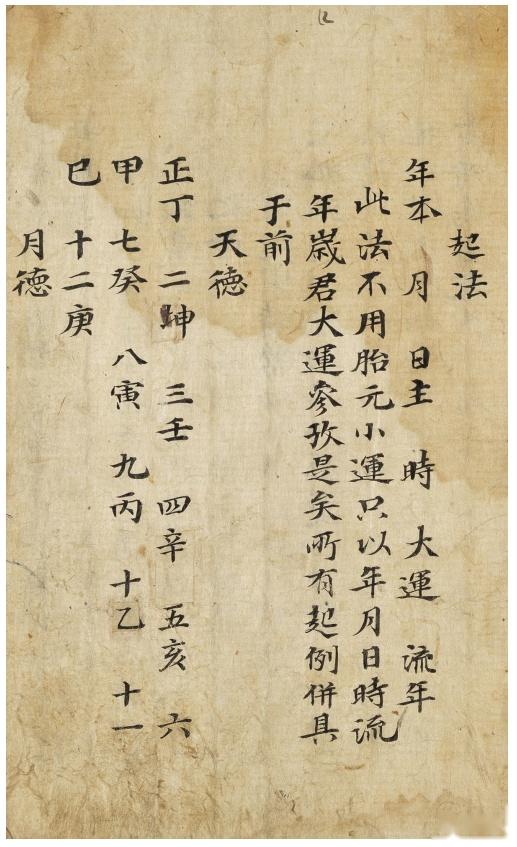 起法
年本 月 日主 時 大運 流年
此法不用胎元小運只以年月日時流
年歳君大運叅攷是矣所有起例併具
于前
天德
正丁 二坤 三壬 四辛 五亥 六
甲 七癸 八寅 九丙 十乙 十一
巳 十二庚
月德